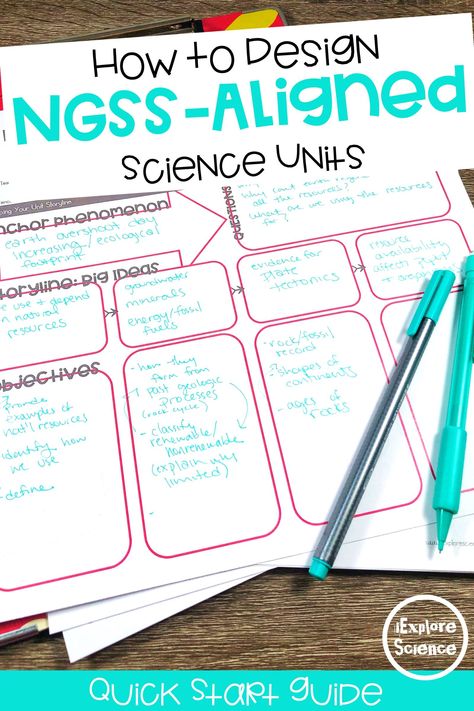 How to Design
NGSS-Aligned
Science Units
ping Your Unit Storyline
nchor Phenomenon
earth overshoot day
increasing / ecological
footprint
Questions
all the resources?
what are we using the resources
for?
toryline: Big Ideas
we use + depend
on natural
resources
groundwater
minerals
energy/fossil
fuels
evidence for
plate
tectonics
resource
availability
affects
bjectives
provide
examples of
nat'l resources
identify how
we use
define
- how they
form from
past geologic
processes
(rock cycle)
- classify
renewable/
nonrenewable
(explain why
limited)
- rock/fossil
record
- shapes of
continents
- ages of
rocks
iExplore
Science
Quick Start Guide